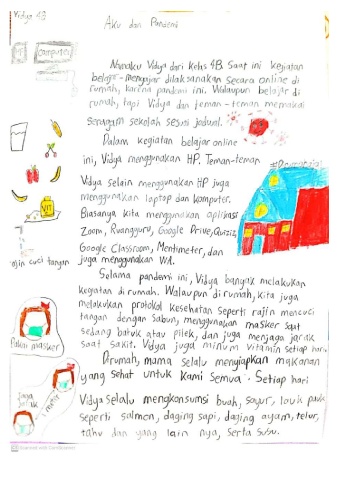 Vidya 4B
Aku dan Pandemi
HP
Computer
Namaku Vidya dari kelas 4B. Saat ini kegiatan
belajar-mengajar dilaksanakan secara online di
rumah, karena pandemi ini. Walaupun belajar di
rumah, tapi Vidya dan teman-teman memakai
seragam sekolah sesuai jadwal.
Dalam kegiatan belajar online
ini, Vidya menggunakan HP. Teman-teman
Vidya selain menggunakan HP juga
menggunakan laptop dan komputer.
Biasanya kita menggunakan aplikasi
Zoom, Ruangguru, Google Drive, Quiziz,
Google Classroom, Mentimeter, dan
juga menggunakan WA.
rajin cuci tangan
Selama pandemi ini, Vidya banyak melakukan
kegiatan di rumah. Walaupun di rumah, kita juga
melakukan protokol kesehatan seperti rajin mencuci
tangan dengan sabun, menggunakan masker saat
sedang batuk atau pilek, dan juga menjaga jarak
saat sakit. Vidya juga minum vitamin setiap hari.
Pakai masker
Dirumah, mama selalu menyiapkan makanan
yang sehat untuk kami semua. Setiap hari
Vidya selalu mengkonsumsi buah, sayur, lauk pauk
seperti salmon, daging sapi, daging ayam, telur,
tahu dan yang lain nya, serta susu.
Jaga
jarak
1 meter
Scanned with CamScanner